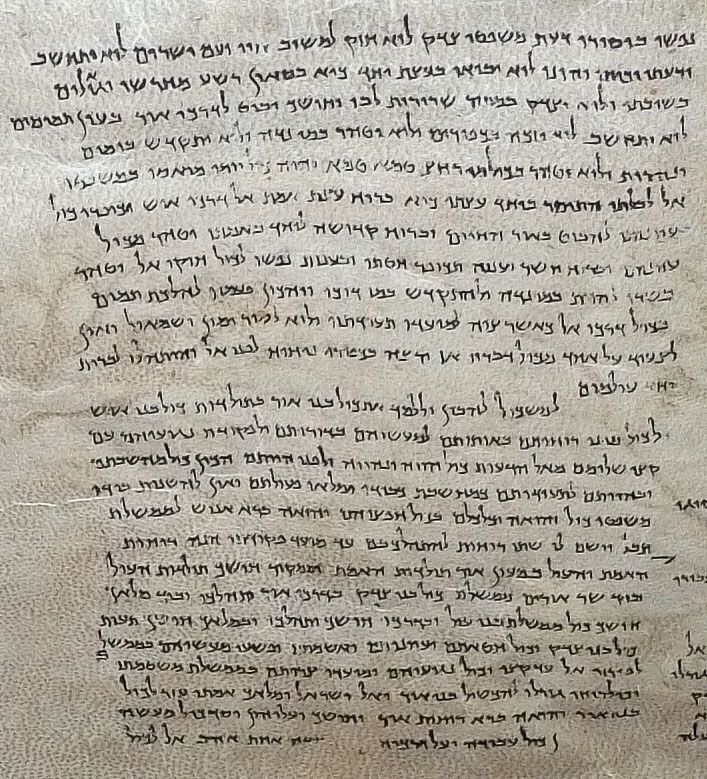 נפשו ביסורי דעת משפטי צדק לוא חזק למשוב חייו ועם ישרים לוא יתחשב
ודעתו וכוחו והונו לוא יבואו בעצת יחד כיא בסאון רשע מחרשו וגאולים
בשובתו ולוא יצדק במתיר שרירות לבו וחושך יביט לדרכי אור בעין תמימים
לוא יתחשב לוא יזכה בכפורים ולוא יטהר במי נדה ולוא יתקדש בימים
ונהרות ולוא יטהר בכול מי רחץ טמא טמא יהיה כול יומי מואסו במשפטי
אל לבלתי התיסר ביחד עצתו כיא ברוח עצת אמת אל דרכי איש יכופרו כול
עוונותו להביט באור החיים וברוח קדושה ליחד באמתו יטהר מכול
עוונותו וברוח יושר וענוה תכופר חטתו ובענות נפשו לכול חוקי אל יטהר
בשרו להזות במי נדה ולהתקדש במי דוכי ויהכין פעמיו להלכת תמים
בכול דרכי אל כאשר צוה למועדי תעודתיו ולוא לסור ימין ושמאול ואין
לצעוד על אחד מכול דבריו אז ירצה בכפורי ניחוח לפני אל והיתה לו לברית
יחד עולמים
למשכיל להבין וללמד את כול בני אור בתולדות כול בני איש
לכול מיני רוחותם באותותם למעשיהם בדורותם ולפקודת נגועיהם עם
קצי שלומם מאל הדעות כול הווה ונהייה ולפני היותם הכין כול מחשבתם
ובהיותם לתעודותם כמחשבת כבודו ימלאו פעולתם ואין להשנות בידו
משפטי כול והואה יכלכלם בכול חפציהם והואה ברא אנוש לממשלת
תבל וישם לו שתי רוחות להתהלך בם עד מועד פקודתו הנה רוחות
האמת והעול במעון אור תולדות האמת וממקור חושך תולדות העול
וביד שר אורים ממשלת כול בני צדק בדרכי אור יתהלכו וביד מלאך
חושך כול ממשלת בני עול ובדרכי חושך יתהלכו ובמלאך חושך תעות
כול בני צדק וכול חטאתם ועוונותם ואשמתם ופשעי מעשיהם בממשלתו
לפי רזי אל עד קצו וכול נגועיהם ומועדי צרותם בממשלת משטמתו
וכול רוחי גורלו להכשיל בני אור ואל ישראל ומלאך אמתו עזר לכול
בני אור והואה ברא רוחות אור וחושך ועליהון יסד כול מעשה
עבודה ועל דרכיהן אחת אהב אל לכול